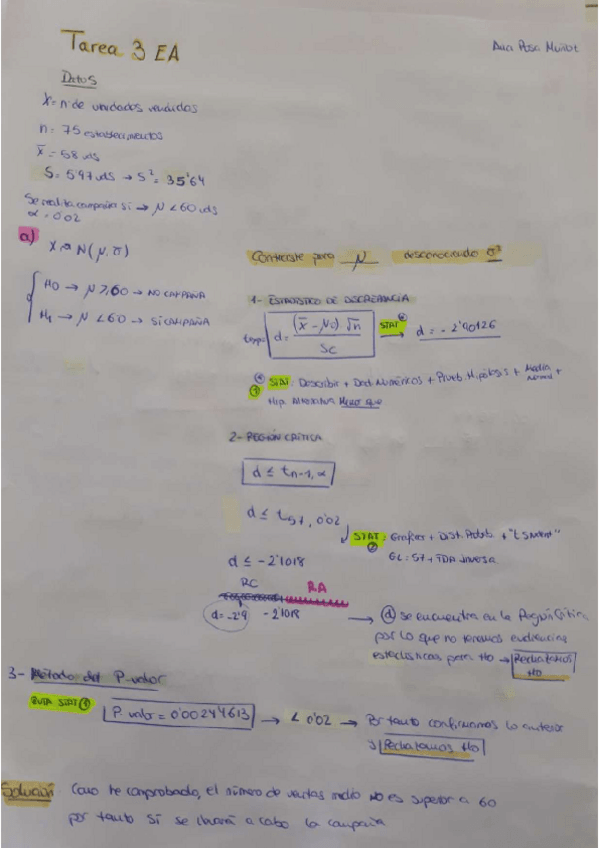 Tarea 3 EA
Ana Posa Muñoz
Datos
X = nº de unidades vendidas
n = 75 establecimientos
x̄ = 58 uds
S = 5'97 uds → S² = 35'64
Se realiza campaña sí → μ < 60 uds
α = 0'02
a) X ~ N(μ, σ)
H0 → μ ≥ 60 → NO CAMPAÑA
H1 → μ < 60 → SÍ CAMPAÑA
Contraste para μ desconocido σ²
1- ESTADÍSTICO DE DISCREPANCIA
texp = d = (x̄ - μ0) √n / Sc STAT d = -2'90126
STAT: Describir + Dat. Numéricos + Prueb. Hipótesis + Media normal +
Hip. Alternativa Menor que
2- REGIÓN CRÍTICA
d ≤ tn-1, α
d ≤ t57, 0'02
STAT: Graficar + Dist. Probab. + "t Student"
2 GL: 57 + TDA INVERSA
d ≤ -2'1018
RC RA
d = -2'9 -2'1018
→ d se encuentra en la Región Crítica
por lo que no tenemos evidencias
estadísticas para H0 → Rechazamos
H0
3- Método del P-valor
RUTA STAT 1 P-valor = 0'00244613 → < 0'02 → Por tanto confirmamos lo anterior
y Rechazamos H0
Solución Como he comprobado, el número de ventas medio NO es superior a 60
por tanto SÍ se llevará a cabo la campaña